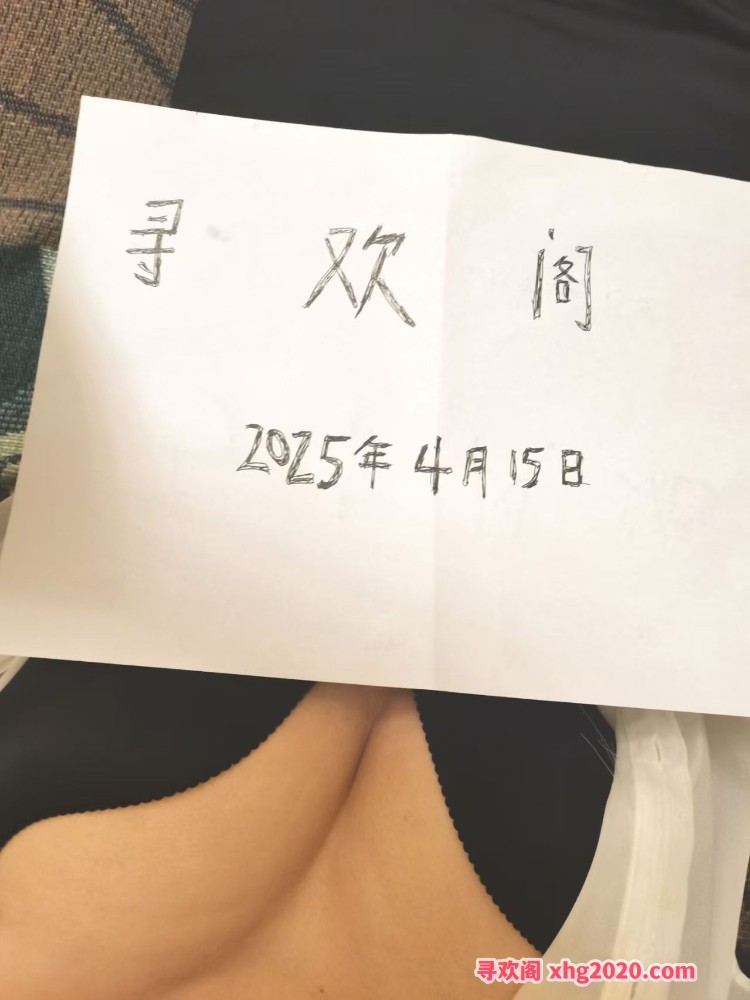 寻欢阁
2025年4月15日
寻欢阁 xhg2020.com